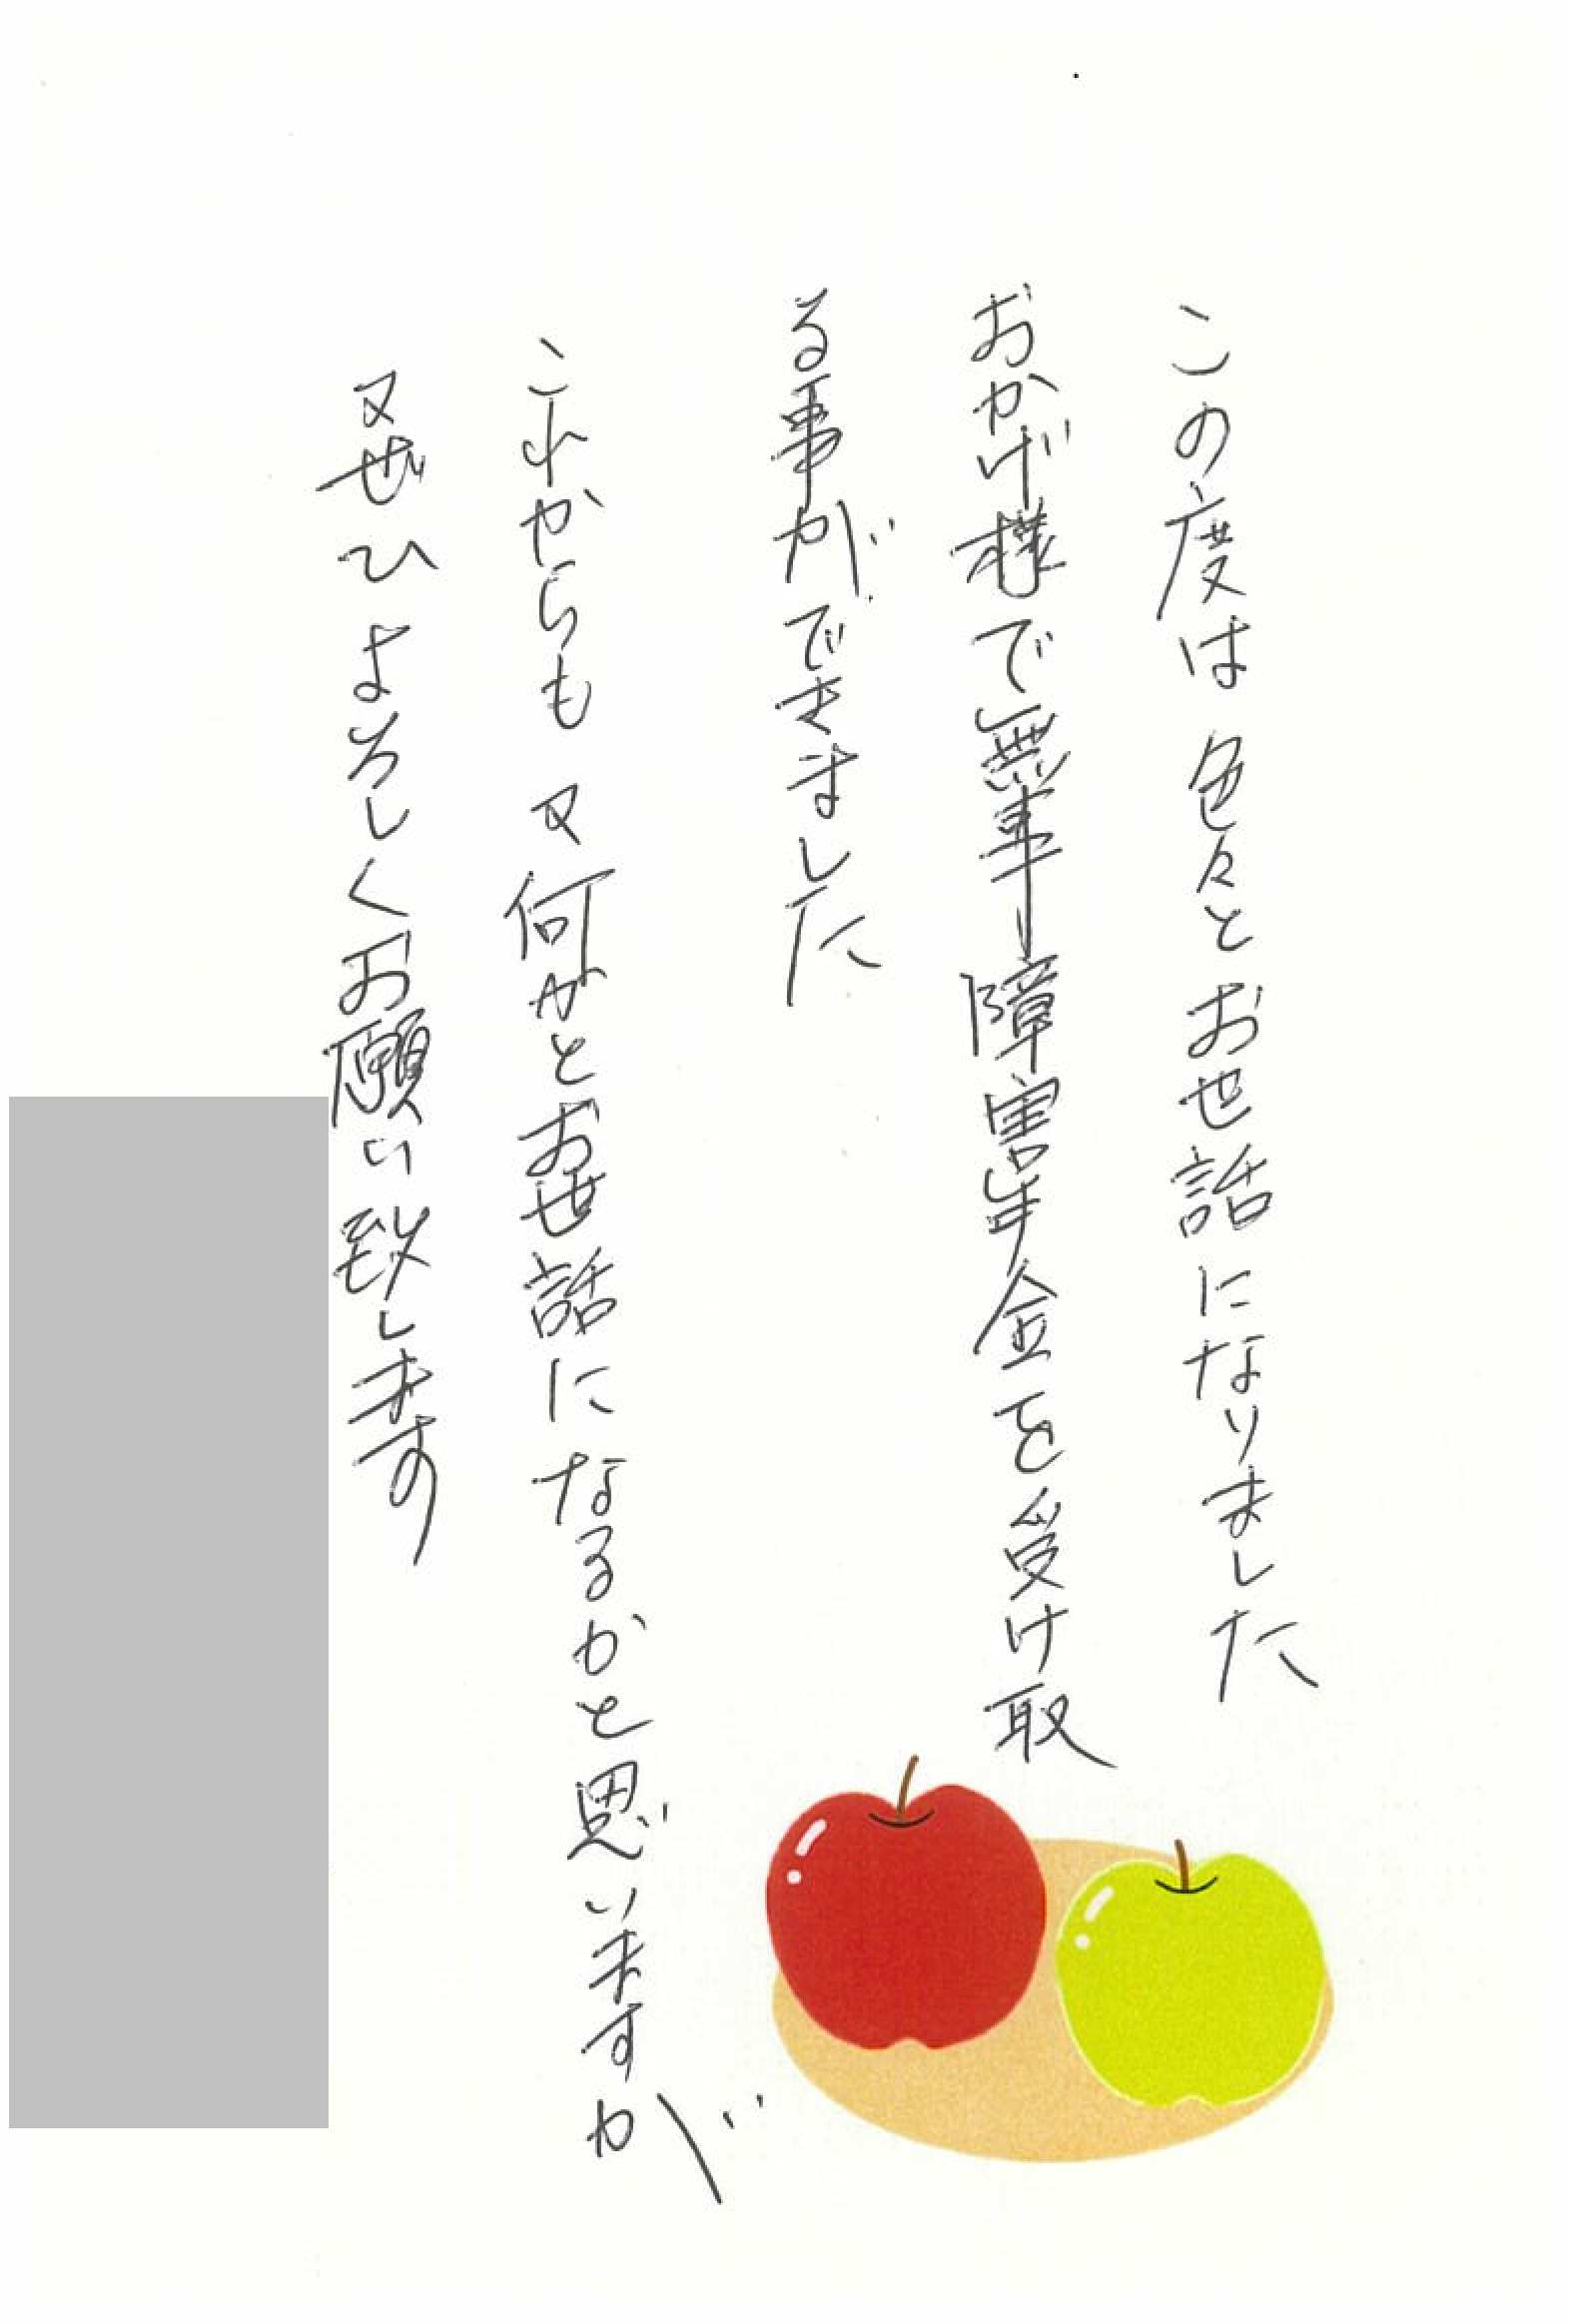 この度は色々とお世話になりました
おかげ様で無事障害年金を受け取
る事ができました
これからも又何かとお世話になるかと思いますが
又ぜひよろしくお願い致します